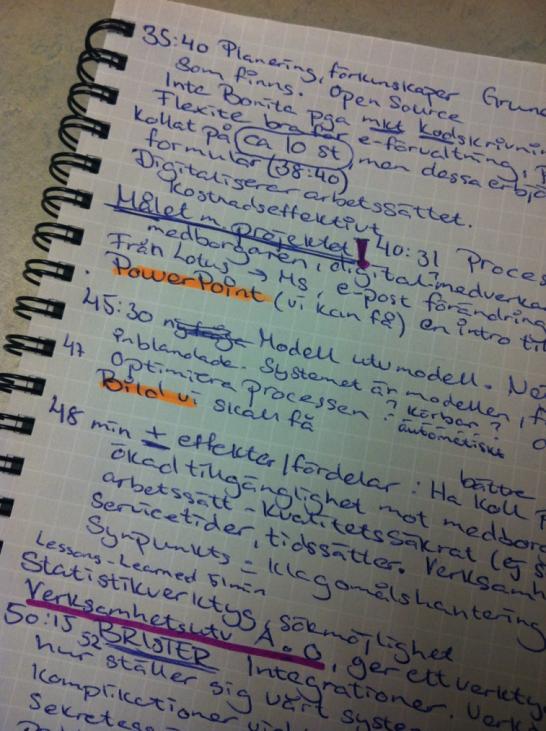 35:40 Planering, förkunskaper Grun
som finns. Open Source
Inte Bonita pga mkt kodskrivnin
Flexite bra för e-förvaltning,
kollat på ca 10 st men dessa erbjö
formulär (38:40)
Digitaliserar arbetssättet.
kostnadseffektivt
Målet m. projektet! 40:31 Proces
medborgaren, digital medverka
Från Lotus → Ms, e-post förändring
PowerPoint (vi kan få) en intro til
45:30 Modell utv modell. No
inblandade. Systemet är modellen, f
47 Optimera processen ? körbar?
automatiskt
Bild vi skall få
bättre
48 min + effekter/fördelar: Ha koll
ökad tillgänglighet mot medborg
arbetssätt - kvalitetssäkrat (ej s
Servicetider, tidssätter. Verksamh
Synpunkts = klagomålshantering
Lessons-Learned 5 min
Statistikverktyg, sökmöjlighet
Verksamhetsutv A-O, ger ett verktyg
50:15 52 BRISTER Integrationer. Verk
hur ställer sig vårt system
Komplikationer